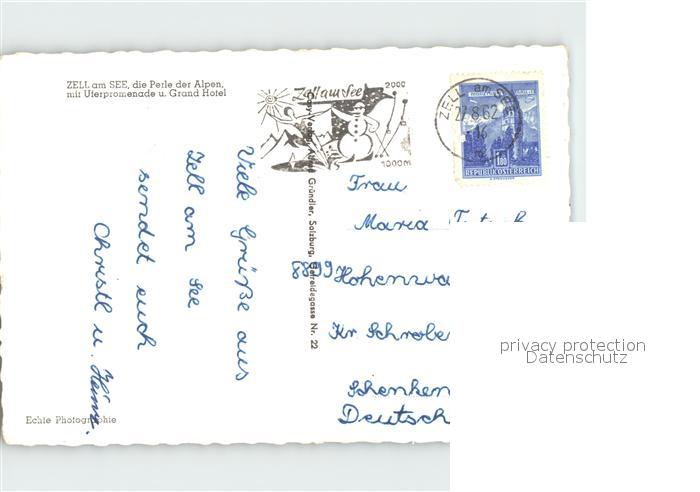 ZELL am SEE, die Perle der Alpen,
mit Uferpromenade u. Grand Hotel
Zell am See
2000
1000m
ZELL am SEE
27.8.62
16
1.80
REPUBLIK ÖSTERREICH
Viele Grüße aus
Zell am See
sendet euch
Christl u. Heinz.
Gründler, Salzburg, Getreidegasse Nr. 22
Frau
Maria
8899 Hohenwa
Kr Schrobe
Schenken
Deutsch
Echte Photographie
privacy protection
Datenschutz